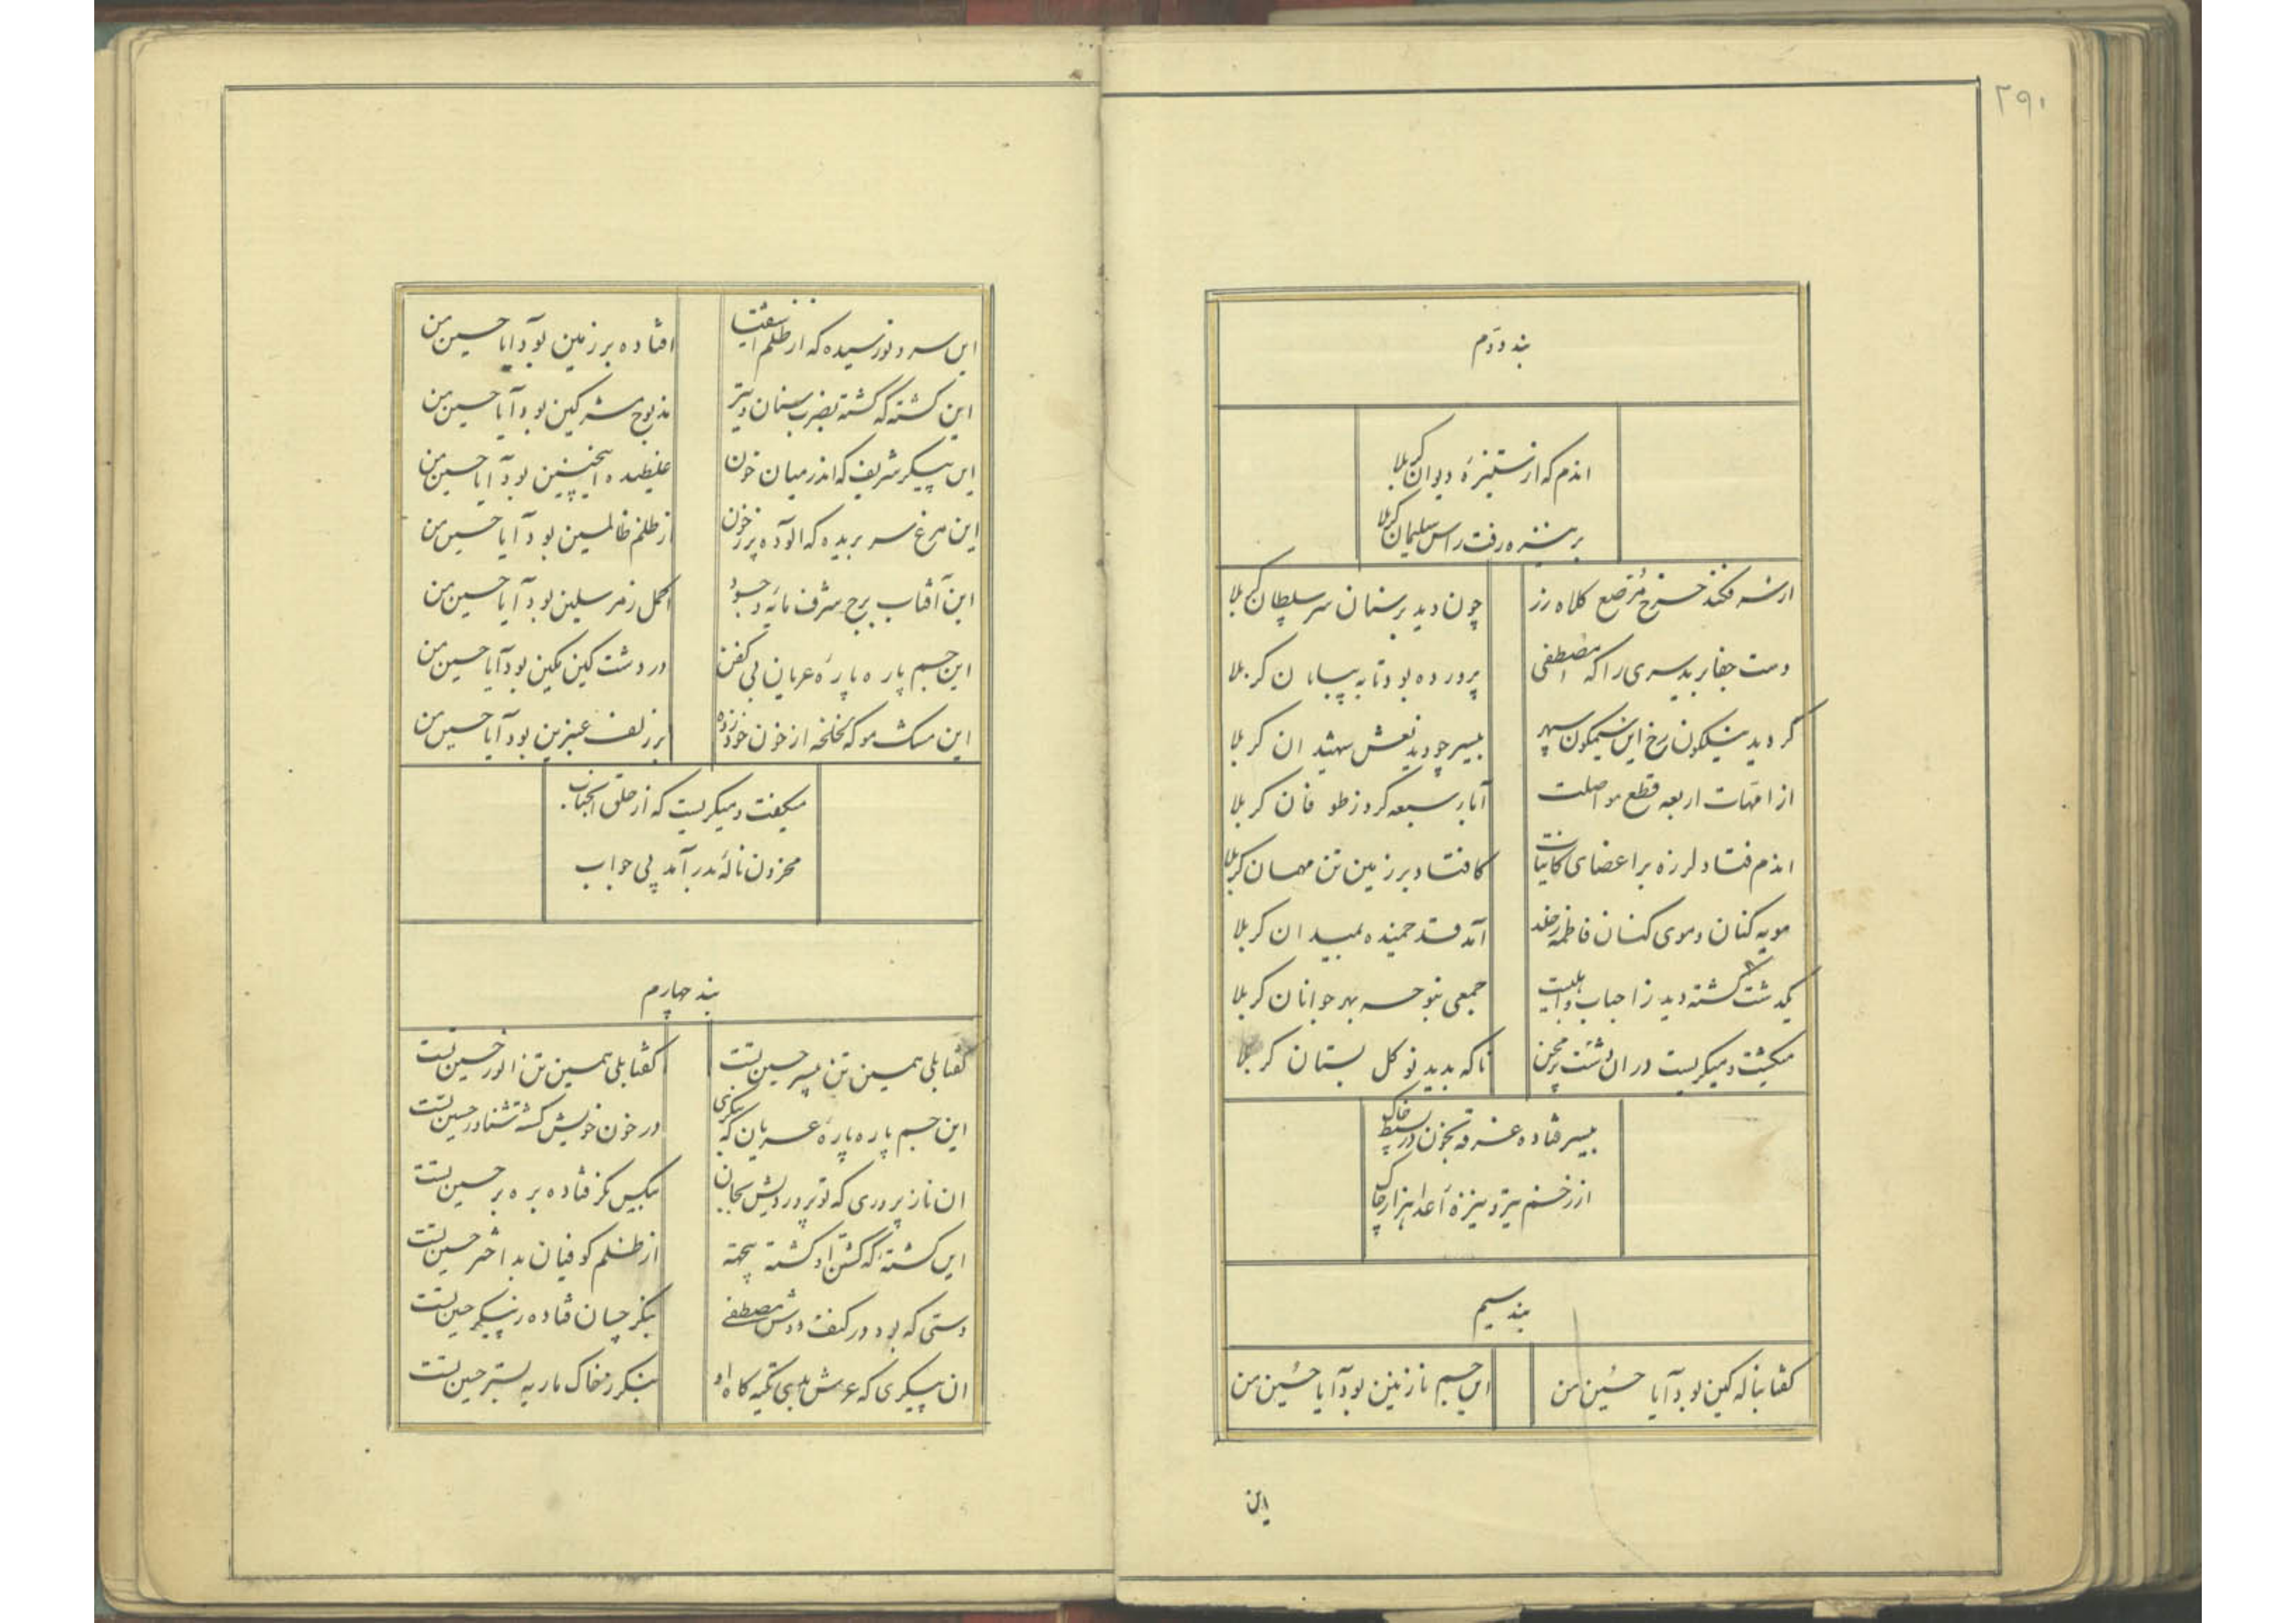 ۲۹۰
بند دوم
اندم که از ستیزه دیوان کربلا
بر نیزه رفت راس سلیمان کربلا
از سر فکند چرخ مرصع کلاه زر چون دید بر سنان سر سلطان کربلا
دست جفا برید سری را که مصطفی پرورده بود تا به بیابان کربلا
گردید نیلگون رخ این نیلگون سپهر بیسر چو دید نعش شهیدان کربلا
از امهات اربعه قطع مواصلت آباء سبعه کرد ز طوفان کربلا
اندم فتاد لرزه بر اعضای کاینات کافتاد بر زمین تن مهمان کربلا
مویه کنان و موی کنان فاطمه ز خلد آمد قد خمیده بمیدان کربلا
یکدشت کشته دید ز احباب و اهلبیت جمعی بنوحه بهر جوانان کربلا
میکشت و میکریست در ان دشت پر محن ناکه بدید نوکل بستان کربلا
بیسر فتاده غرقه بخون در بسیط خاک
از زخم تیر و نیزه اعدا هزار چاک
بند سیم
کفتا بناله کین بود آیا حسین من این جسم نازنین بود آیا حسین من
این
این سرو نورسیده که از ظلم اشقیا افتاده بر زمین بود آیا حسین من
این کشته که کشته بضرب سنان و تیر مذبوح مشرکین بود آیا حسین من
این پیکر شریف که اندر میان خون غلطیده اینچنین بود آیا حسین من
این مرغ سر بریده که آلوده پر ز خون از ظلم ظالمین بود آیا حسین من
این آفتاب برج شرف مایه وجود اکمل ز مرسلین بود آیا حسین من
این جسم پاره پاره عریان بی کفن در دشت کین مکین بود آیا حسین من
این مشک مو که لخلخه از خون خود زده بر زلف عنبرین بود آیا حسین من
میکفت و میکریست که از حلق انجناب
محزون ناله بدر آمد پی جواب
بند چهارم
کفتا بلی همین تن بیسر حسین تست کفتا بلی همین تن انور حسین تست
این جسم پاره پاره عریان که بنکری در خون خویش کشته شناور حسین تست
ان نازپروری که تو پروردیش بجان بیکس نکر فتاده بره بر حسین تست
این کشته که کشتن او کشته بیجهة از ظلم کوفیان بد اختر حسین تست
دستی که بود در کنف دوش مصطفی بنکر چسان فتاده ز پیکر حسین تست
ان پیکری که عرش بدی تکیه کاه او بنکر ز خاک ماریه بستر حسین تست